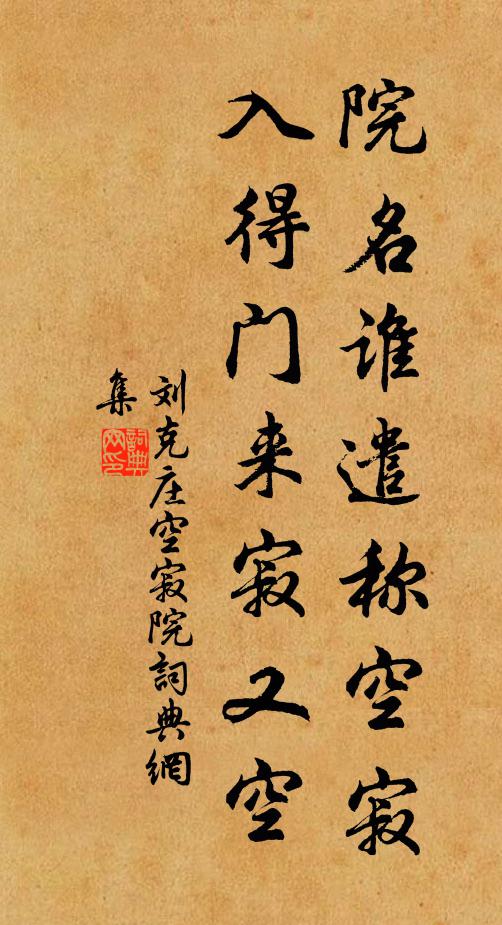 院名谁遣称空寂
入得门来寂又空
刘克庄空寂院詞典網
集
詞典網印